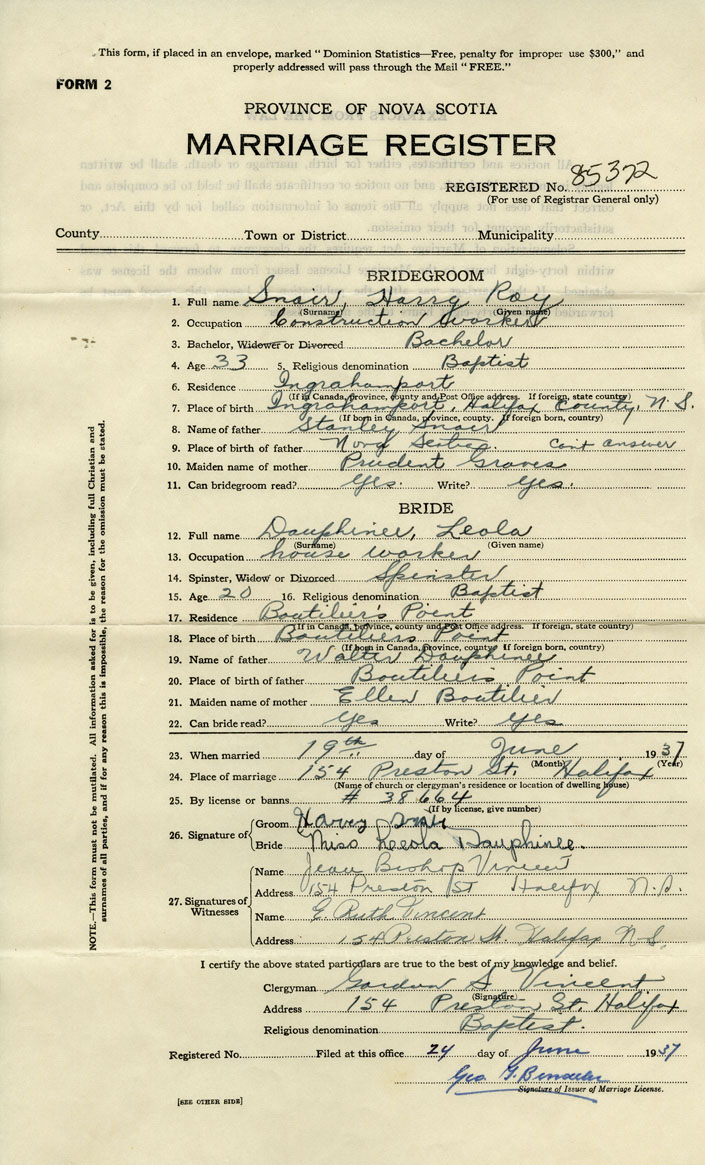 This form, if placed in an envelope, marked "Dominion Statistics—Free, penalty for improper use $300," and
properly addressed will pass through the Mail "FREE."
FORM 2
PROVINCE OF NOVA SCOTIA
MARRIAGE REGISTER
REGISTERED No. 85372
(For use of Registrar General only)
County Town or District Municipality
BRIDEGROOM
1. Full name Snair, Harry Roy
(Surname) (Given name)
2. Occupation Construction Worker
3. Bachelor, Widower or Divorced Bachelor
4. Age 33 5. Religious denomination Baptist
6. Residence Ingrahamport
(If in Canada, province, county and Post Office address. If foreign, state country)
7. Place of birth Ingrahamport, Halifax County, N.S.
(If born in Canada, province, county. If foreign born, country)
8. Name of father Stanley Snair
9. Place of birth of father Nova Scotia can't answer
10. Maiden name of mother Prudent Graves
11. Can bridegroom read? Yes. Write? Yes.
BRIDE
12. Full name Dauphinee, Leola
(Surname) (Given name)
13. Occupation house worker
14. Spinster, Widow or Divorced Spinster
15. Age 20 16. Religious denomination Baptist
17. Residence Boutilier's Point
(If in Canada, province, county and Post Office address. If foreign, state country)
18. Place of birth Boutiliers Point
(If born in Canada, province, county. If foreign born, country)
19. Name of father Walter Dauphinee
20. Place of birth of father Boutiliers Point
21. Maiden name of mother Ellen Boutilier
22. Can bride read? Yes Write? Yes
23. When married 19th day of June 1937
(Month) (Year)
24. Place of marriage 154 Preston St. Halifax
(Name of church or clergyman's residence or location of dwelling house)
25. By license or banns # 38664
(If by license, give number)
26. Signature of Groom Harry Snair
Bride Miss Leola Dauphinee.
27. Signatures of Witnesses Name Jean Bishop Vincent
Address 154 Preston St Halifax N.S.
Name E. Ruth Vincent
Address 154 Preston St. Halifax N.S.
I certify the above stated particulars are true to the best of my knowledge and belief.
Clergyman Gordon S Vincent
(Signature)
Address 154 Preston St. Halifax
Religious denomination Baptist.
Registered No. Filed at this office 24 day of June 1937
Geo. G.
Signature of Issuer of Marriage License.
[SEE OTHER SIDE]
NOTE.—This form must not be mutilated. All information asked for is to be given, including full Christian and
surnames of all parties, and if for any reason this is impossible, the reason for the omission must be stated.